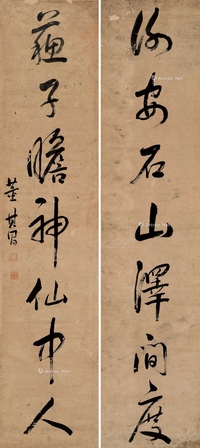 謝安石山澤間度
蘇子瞻神仙中人
董其昌